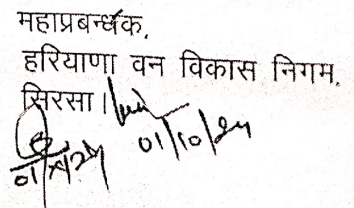 महाप्रबन्धक,
हरियाणा वन विकास निगम,
सिरसा।
01/10/24